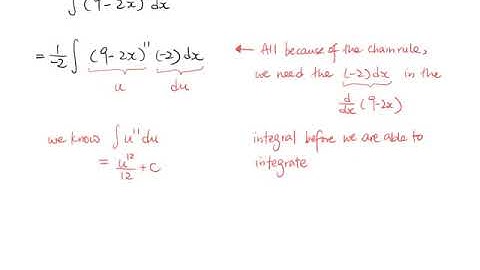 ∫ (9-2x) dx
= 1/-2 ∫ (9-2x)¹¹ (-2) dx ← All because of the chain rule,
u du we need the (-2) dx in the
d/dx (9-2x)
we know ∫ u¹¹ du integral before we are able to
= u¹²/12 + C integrate